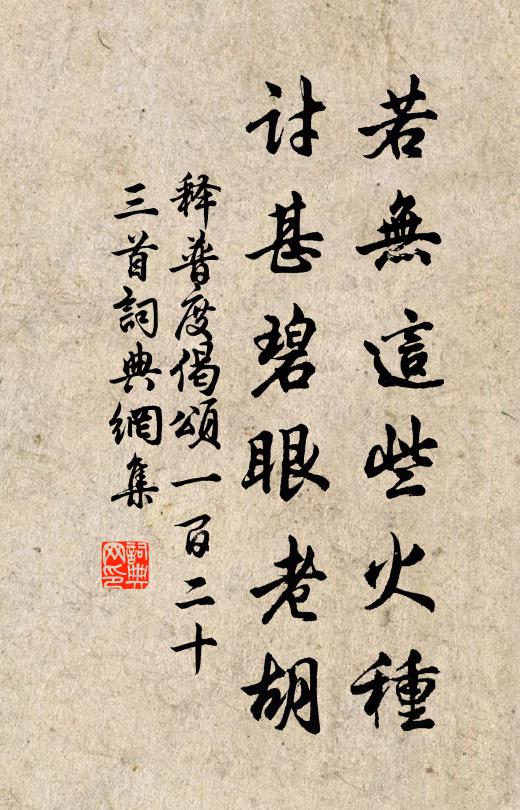 若無這些火種
討甚碧眼老胡
释普度偈頌一百二十
三首詞典網集
詞典网印